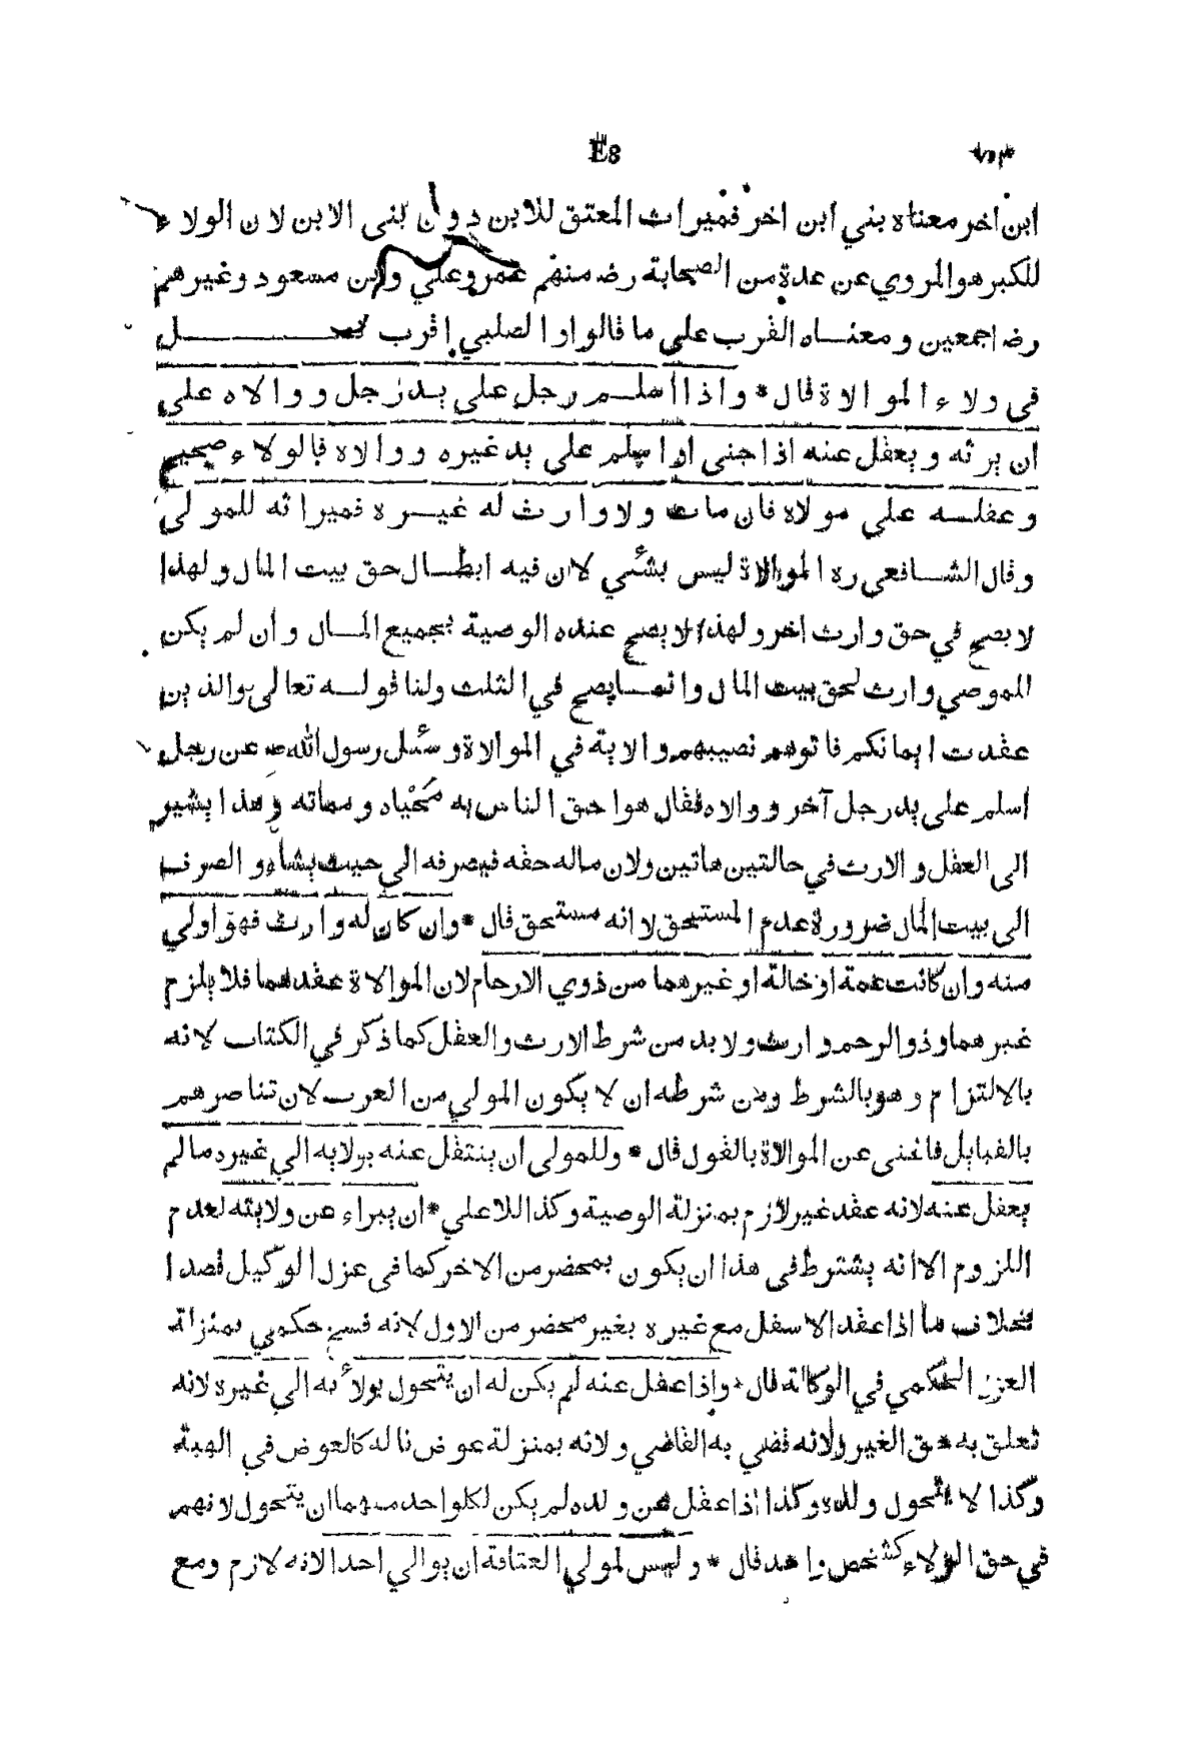 E8 ٧٥٣
ابن اخر معناه بني ابن اخر فميراث المعتق للابن دون بنى الابن لان الولاء
للكبر هو المروي عن عدة من الصحابة رضه منهم عمر وعلي وابن مسعود وغيرهم
رضه اجمعين ومعنـاه القرب على ما قالوا والصلبي اقرب فصـــــل
فى ولاء الموالاة قال * واذا اسلم رجل على يد رجل ووالاه على
ان يرثه ويعقل عنه اذا جنى او اسلم على يد غيره ووالاه فالولاء صحيح
وعقلـه على مولاه فان مات ولا وارث له غيـره فميراثه للمولى
وقال الشـافعى ره الموالاة ليس بشئي لان فيه ابطـال حق بيت المال ولهذا
لا يصح في حق وارث اخر ولهذا لا يصح عنده الوصية بجميع المـال وان لم يكن
للموصي وارث لحق بيت المال وانمـا يصح في الثلث ولنا قولـه تعالى والذين
عقدت ايمانكم فاتوهم نصيبهم والاية في الموالاة وسئل رسول الله صه عن رجل
اسلم على يد رجل آخر ووالاه فقال هو احق الناس به محياه ومماته وهذا يشير
الى العقل والارث في حالتين هاتين ولان ماله حقه فيصرفه الى حيث يشاء والصرف
الى بيت المال ضرورة عدم المستحق لا انه مستحق قال * وان كان له وارث فهو اولى
منه وان كانت عمة او خالة او غيرهما من ذوي الارحام لان الموالاة عقدهما فلا يلزم
غيرهما وذو الرحم وارث ولا بد من شرط الارث والعقل كما ذكر في الكتاب لانه
بالالتزام وهو بالشرط ومن شرطه ان لا يكون المولي من العرب لان تناصرهم
بالقبايل فاغنى عن الموالاة بالقول قال * وللمولى ان ينتقل عنه بولايه الي غيره ما لم
يعقل عنه لانه عقد غير لازم بمنزلة الوصية وكذا للاعلي * ان يبراء عن ولايته لعدم
اللزوم الا انه يشترط في هذا ان يكون بمحضر من الاخر كما في عزل الوكيل قصدا
بخلاف ما اذا عقد الاسفل مع غيره بغير محضر من الاول لانه فسخ حكمي بمنزلة
العزل الحكمي في الوكالة قال * واذا عقل عنه لم يكن له ان يتحول بولائه الي غيره لانه
تعلق به حق الغير ولانه قضي به القاضي ولانه بمنزلة عوض ناله كالعوض في الهبة
وكذا لا يتحول ولده وكذا اذا عقل عن ولده لم يكن لكل واحد منهما ان يتحول لانهم
في حق الولاء كشخص واحد قال * وليس لمولي العتاقة ان يوالي احدا لانه لازم ومع